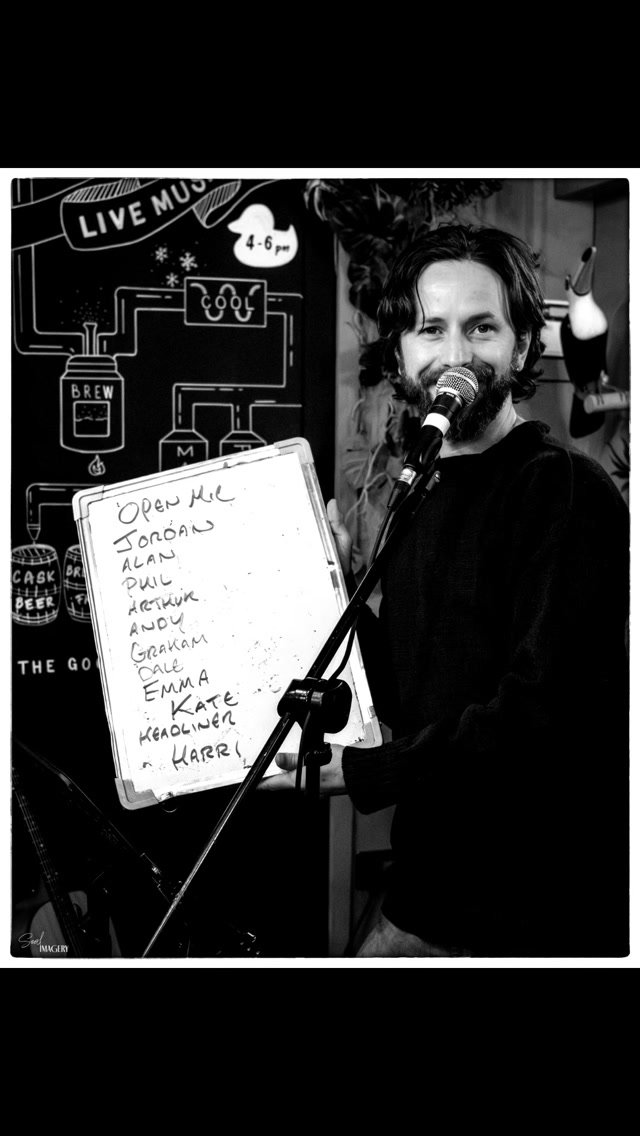 LIVE MUS
4-6 pm
COOL
BREW
M
T
CASK
BEER
BR
FA
THE GO
OPEN MIC
JORDAN
ALAN
PHIL
ARTHUR
ANDY
GRAHAM
DALE
EMMA
KATE
HEADLINER
HARRI
Soul
IMAGERY